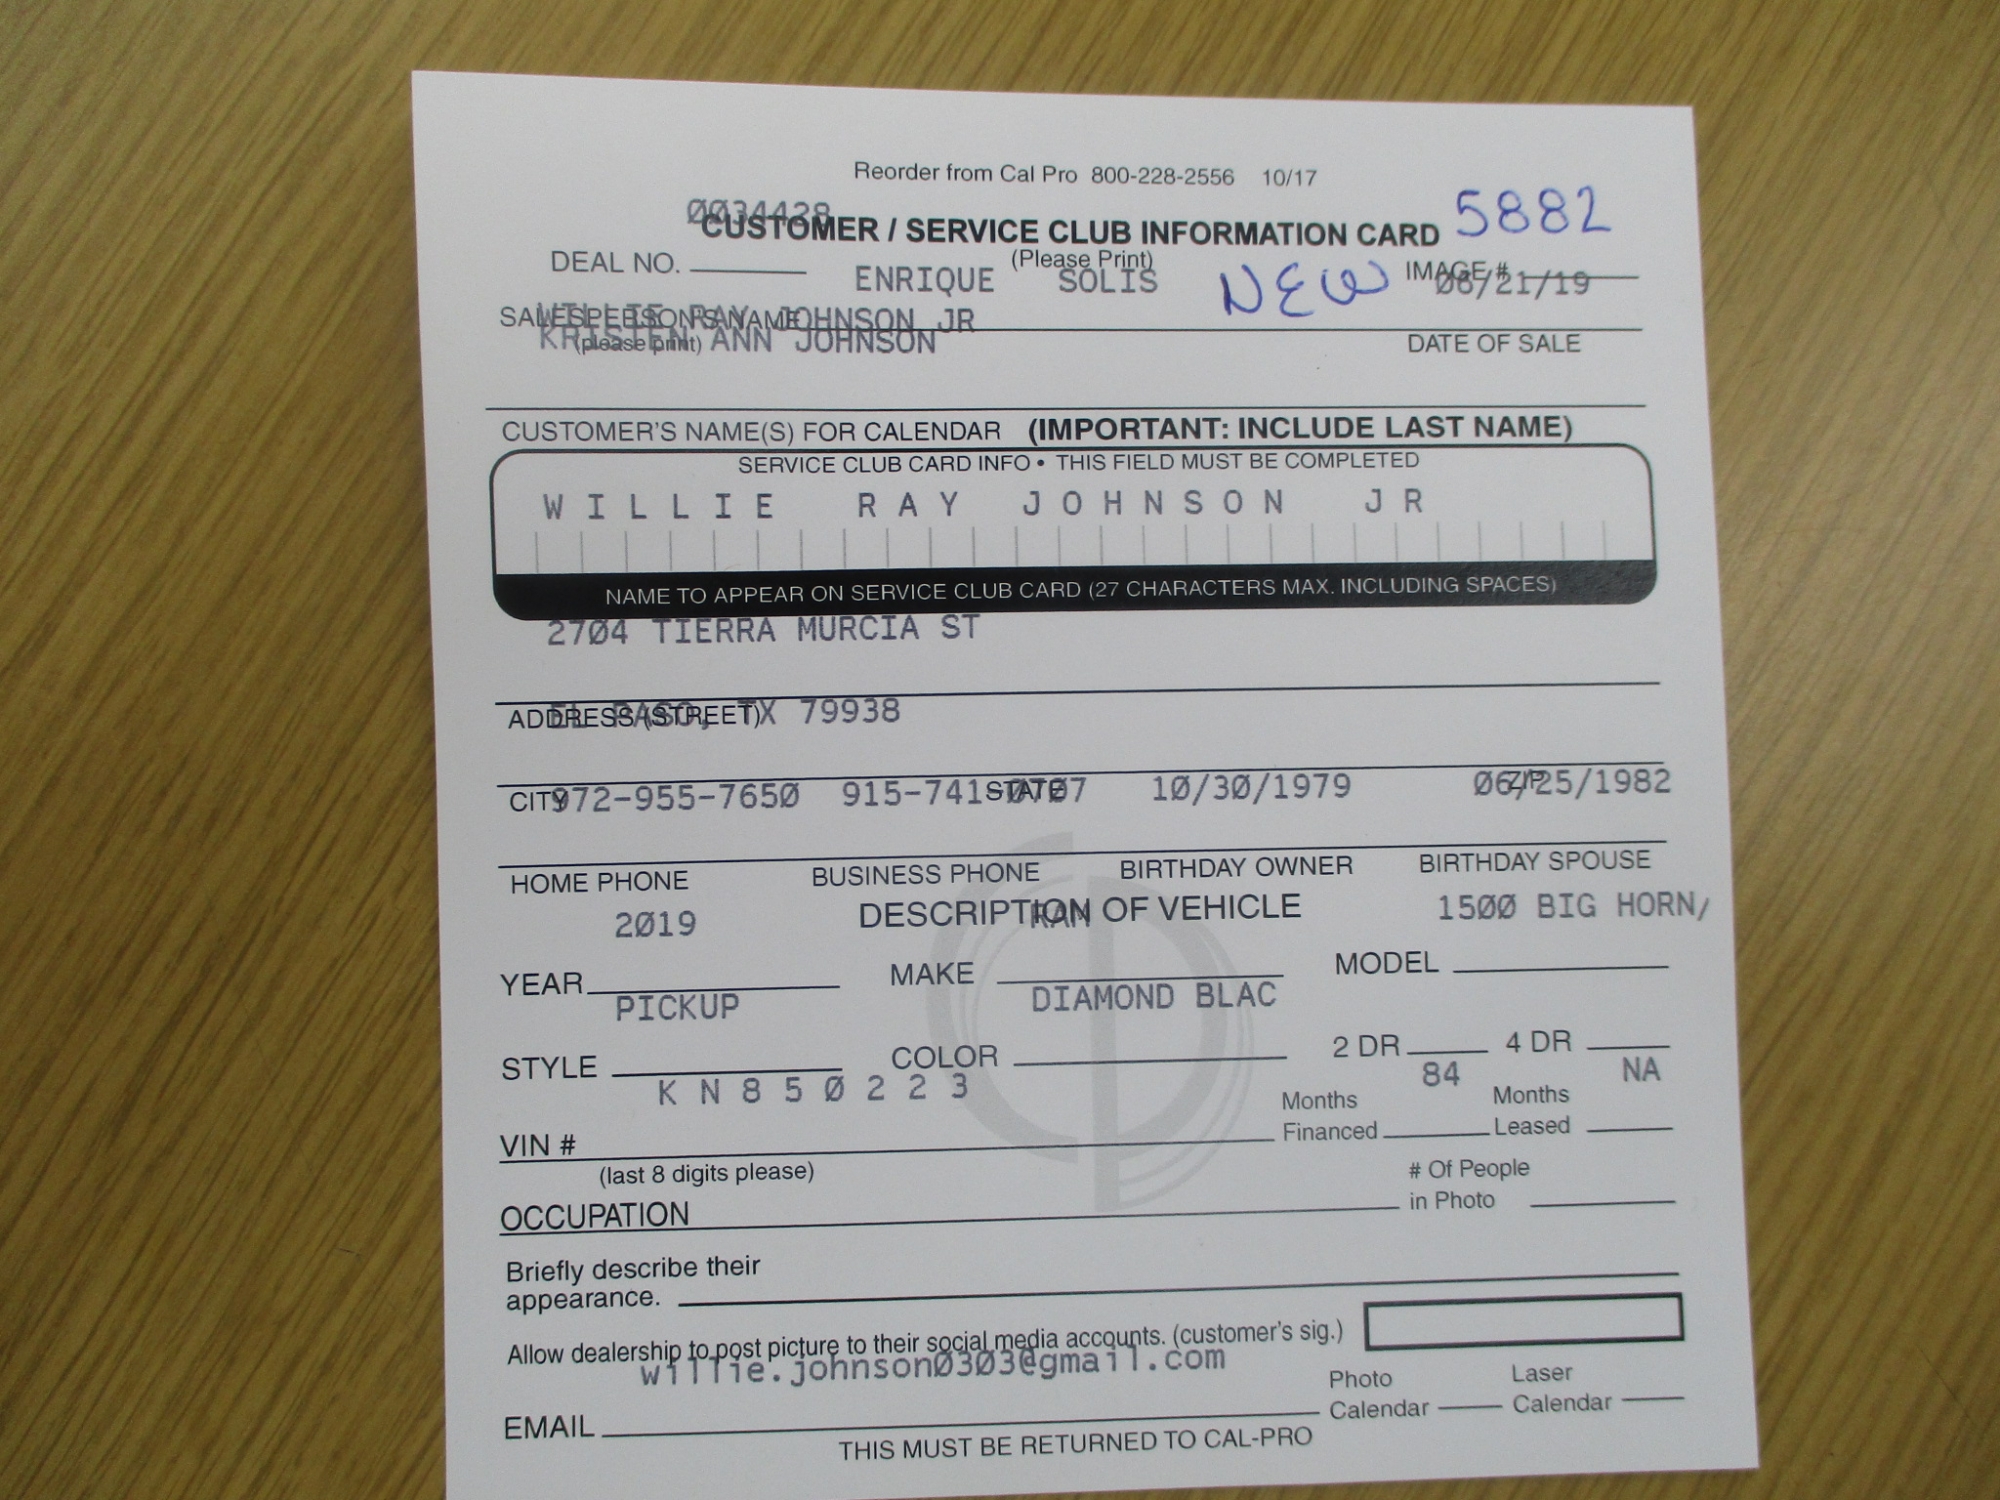 Reorder from Cal Pro 800-228-2556 10/17
0034428
CUSTOMER / SERVICE CLUB INFORMATION CARD 5882
(Please Print)
DEAL NO. ENRIQUE SOLIS NEW IMAGE #
06/21/19
SALESPERSON'S NAME
WILLIE RAY JOHNSON JR
(please print)
KRISTEN ANN JOHNSON
DATE OF SALE
CUSTOMER'S NAME(S) FOR CALENDAR (IMPORTANT: INCLUDE LAST NAME)
SERVICE CLUB CARD INFO • THIS FIELD MUST BE COMPLETED
WILLIE RAY JOHNSON JR
NAME TO APPEAR ON SERVICE CLUB CARD (27 CHARACTERS MAX. INCLUDING SPACES)
2704 TIERRA MURCIA ST
ADDRESS (STREET)
EL PASO, TX 79938
CITY STATE ZIP
972-955-7650 915-741-0707 10/30/1979 06/25/1982
HOME PHONE BUSINESS PHONE BIRTHDAY OWNER BIRTHDAY SPOUSE
DESCRIPTION OF VEHICLE
2019 RAM 1500 BIG HORN/
YEAR MAKE MODEL
PICKUP DIAMOND BLAC
STYLE COLOR 2 DR 4 DR
KN850223 84 NA
VIN # Months Financed Months Leased
(last 8 digits please)
OCCUPATION # Of People in Photo
Briefly describe their
appearance.
Allow dealership to post picture to their social media accounts. (customer's sig.)
willie.johnson0303@gmail.com
EMAIL Photo Calendar Laser Calendar
THIS MUST BE RETURNED TO CAL-PRO